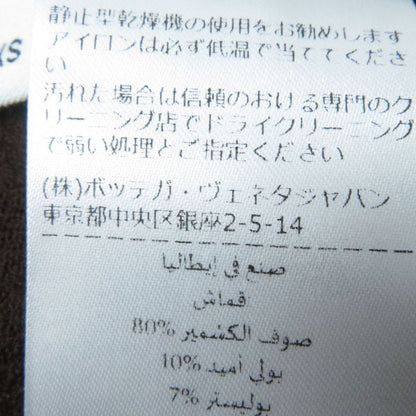 静止型乾燥機の使用をお勧めします
アイロンは必ず低温で当ててくださ
い
汚れた場合は信頼のおける専門のク
リーニング店でドライクリーニング
で弱い処理とご指定ください
(株)ボッテガ・ヴェネタジャパン
東京都中央区銀座2-5-14
صنع في إيطاليا
قماش
صوف الكشمير 80%
بولي أميد 10%
بوليستر 7%
XS